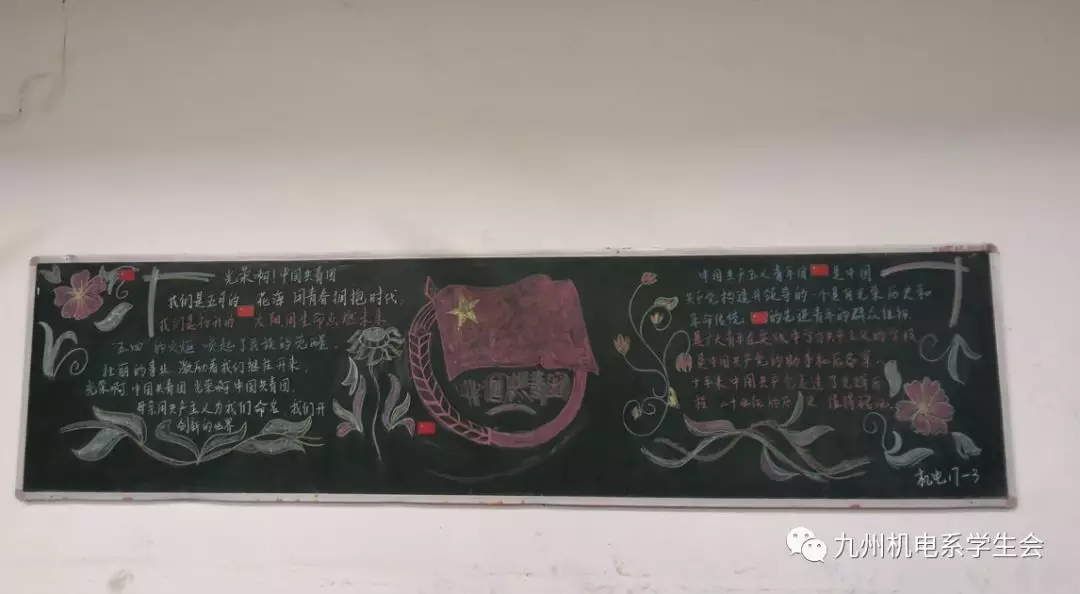 光荣啊!中国共青团
我们是五月的 花海 用青春拥抱时代.
我们是初升的 太阳 用生命点燃未来
五四 的火炬 唤起了民族的觉醒
壮丽的事业 激励着我们继往开来.
光荣啊 中国共青团 光荣啊 中国共青团.
母亲用共产主义为我们命名 我们开
创新的世界
中国共青团
中国共产主义青年团 是中国
共产党 领导的一个具有光荣历史和
革命传统 的先进青年的群众组织
是广大青年在实践中学习共产主义的学校
是中国共产党的助手和后备军.
十年来 中国共产党走过了光辉历
程 二十世纪的历史
机电17-3
九州机电系学生会